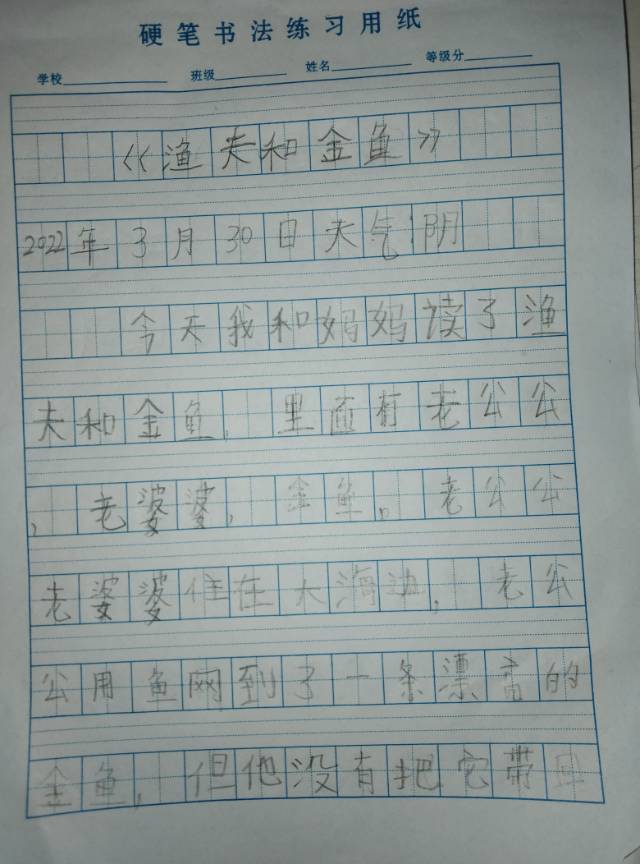 硬笔书法练习用纸
学校 班级 姓名 等级分
《渔夫和金鱼》
2022年3月30日天气阴
今天我和妈妈读了渔
夫和金鱼,里面有老公公
,老婆婆,金鱼。老公公
老婆婆住在大海边,老公
公用鱼网到了一条漂亮的
金鱼,但他没有把它带